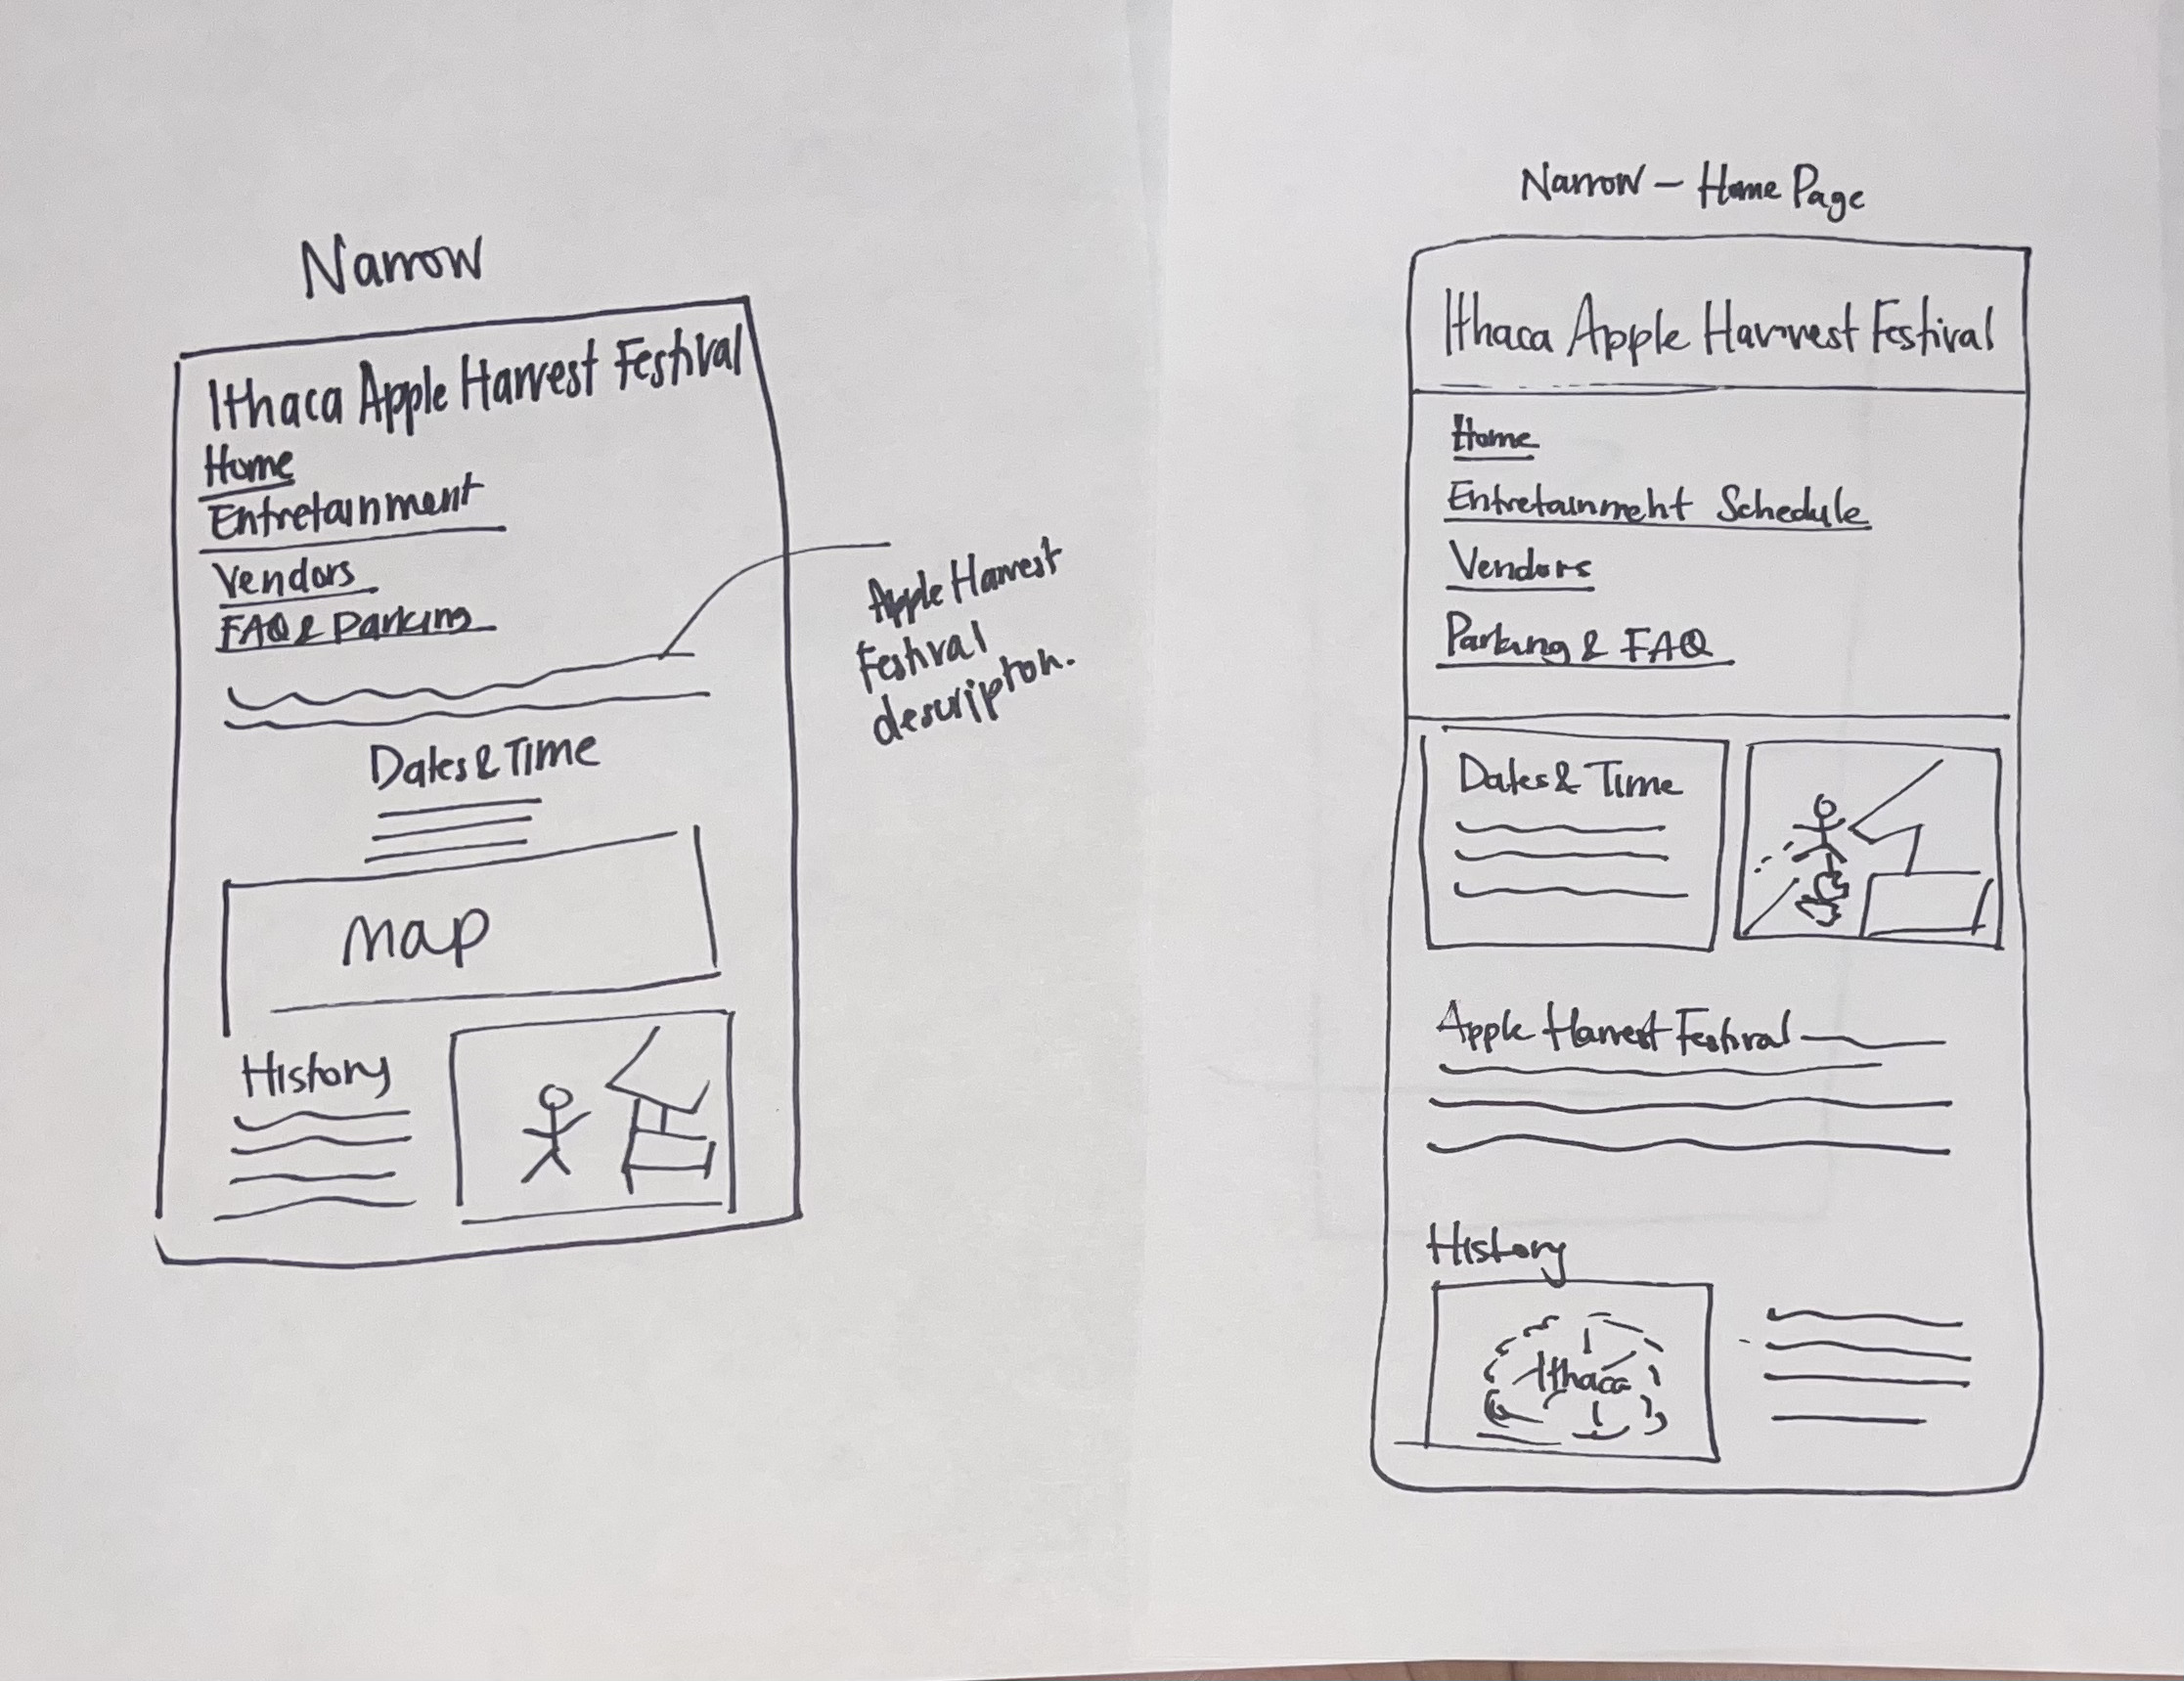 Narrow
Ithaca Apple Harvest Festival
Home
Entretainment
Vendors
FAQ & Parking
Apple Harvest
Festival
description.
Dates & Time
map
History
Narrow – Home Page
Ithaca Apple Harvest Festival
Home
Entretainment Schedule
Vendors
Parking & FAQ
Dates & Time
Apple Harvest Festival
History
Ithaca